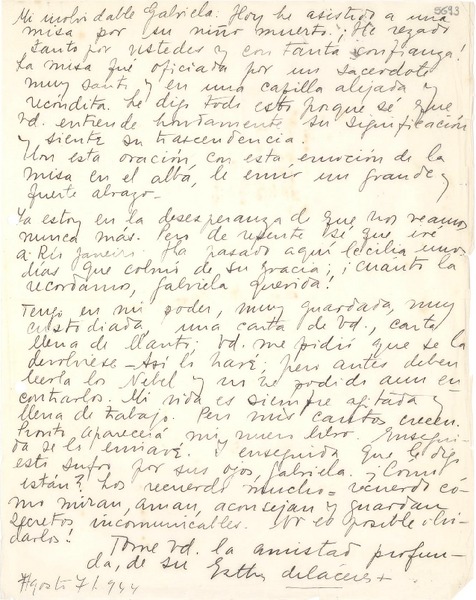 5693
Mi inolvidable Gabriela: Hoy he asistido a una
misa por su niño muerto. ¡He rezado
tanto por ustedes y con tanta confianza!
La misa fué oficiada por un sacerdote
muy santo y en una capilla alejada y
recóndita. Le digo todo esto porque sé que
Vd. entiende hondamente su significación
y siente su trascendencia.
Con esta oración, con esta emoción de la
misa en el alba, le envío un grande y
fuerte abrazo—
Ya estoy en la desesperanza de que nos veamos
nunca más. Pero de repente sé que iré
a Río Janeiro. Ha pasado aquí Cecilia unos
días que colmó de su gracia; ¡cuanto la
recordamos, Gabriela querida!
Tengo en mi poder, muy guardada, muy
custodiada, una carta de Vd., carta
llena de llanto: Vd. me pidió que se la
devolviese— Así lo haré; pero antes deben
leerla los Nebel y no he podido aun en
contrarlos. Mi vida es siempre agitada y
llena de trabajo. Pero mis cantos crecen.
Pronto aparecerá mi nuevo libro. Enseguida
da se lo enviaré. Y enseguida que le digo
esto sufro por sus ojos, Gabriela. ¿Como
están? Los recuerdo mucho— recuerdo có-
mo miran, aman, aconsejan y guardan
secretos incomunicables. No es posible olvi-
darlos!
Tome Vd. la amistad profun-
da, de su Esther de Cáceres +
Agosto 7/1944